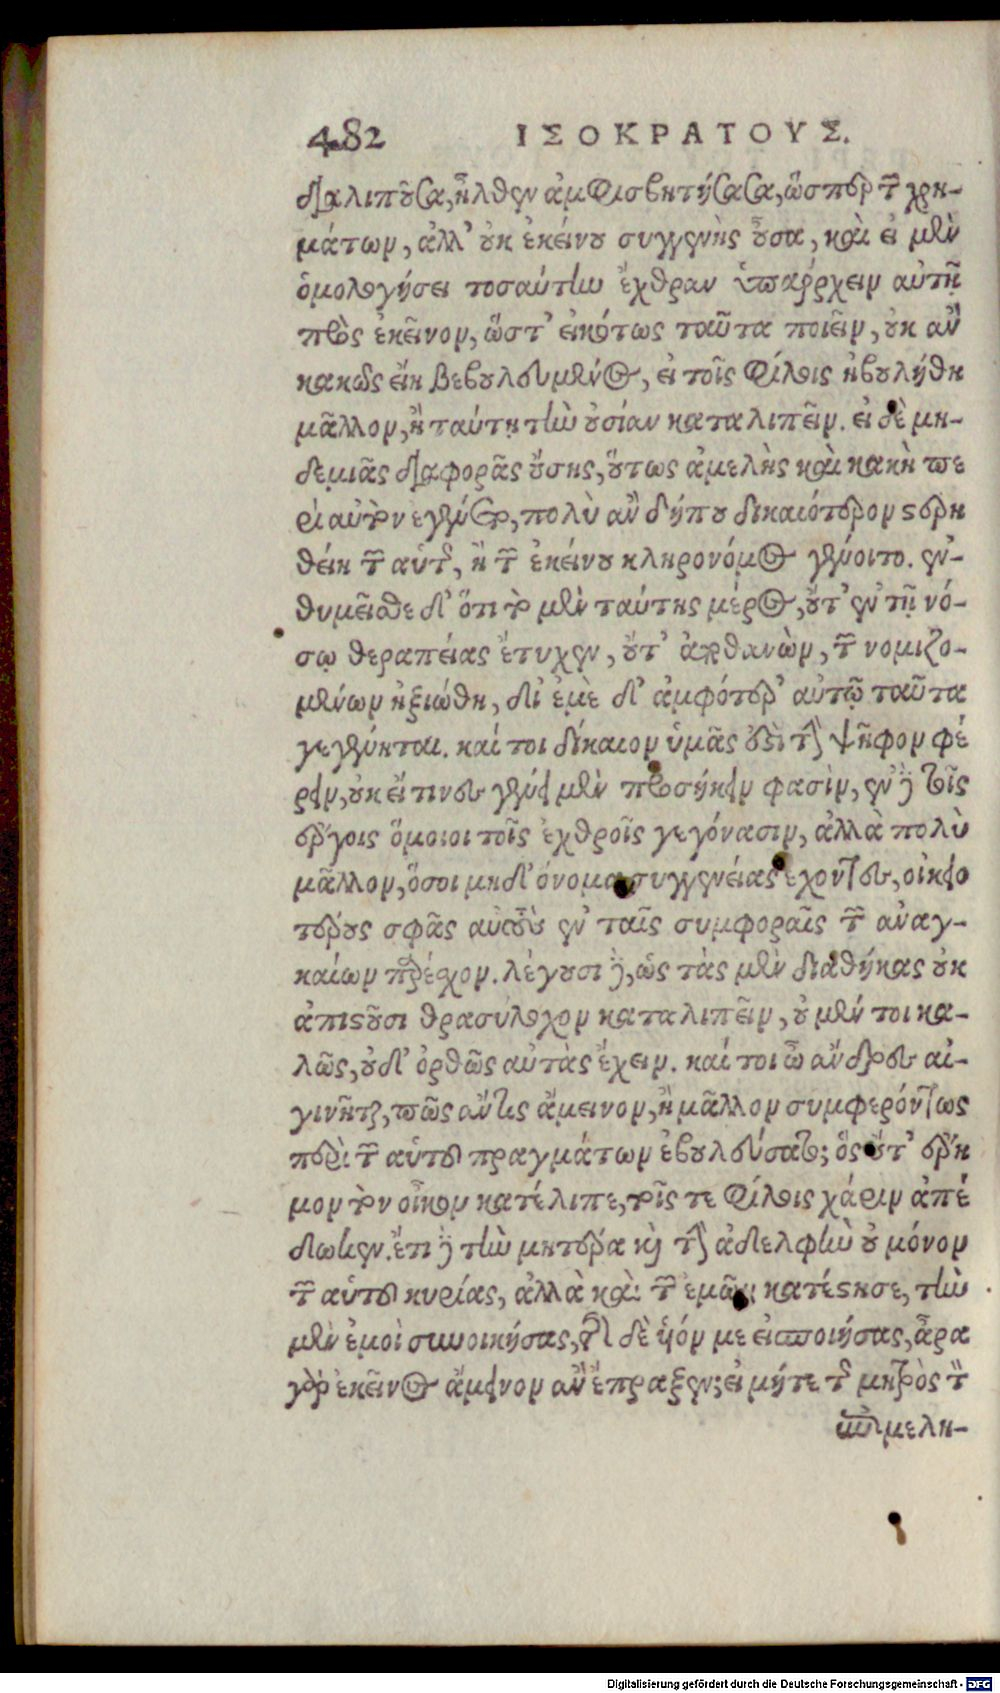 482 ΙΣΟΚΡΑΤΟΥΣ.
διαλιποῦσα, ἦλθεν ἀμφισβητήσασα, ὥσπερ τῶν χρη-
μάτων, ἀλλ' οὐκ ἐκείνου συγγενὴς οὖσα, καὶ εἰ μὲν
ὁμολογήσει τοσαύτην ἔχθραν ὑπάρχειν αὐτῇ
πρὸς ἐκεῖνον, ὥστ' εἰκότως ταῦτα ποιεῖν, οὐκ ἂν
κακῶς εἴη βεβουλευμένος, εἰ τοῖς φίλοις ἠβουλήθη
μᾶλλον, ἢ ταύτῃ τὴν οὐσίαν καταλιπεῖν. εἰ δὲ μη-
δεμιᾶς διαφορᾶς οὔσης, οὕτως ἀμελὴς καὶ κακὴ πε
ρὶ αὐτὸν ἐγένετο, πολὺ ἂν δήπου δικαιότερον στερη
θείη τῶν αὑτῆς, ἢ τῶν ἐκείνου κληρονόμος γένοιτο. ἐν-
θυμεῖσθε δ' ὅτι τὸ μὲν ταύτης μέρος, οὔτ' ἐν τῇ νό-
σῳ θεραπείας ἔτυχεν, οὔτ' ἀποθανὼν, τῶν νομιζο-
μένων ἠξιώθη, δι' ἐμὲ δ' ἀμφότερ' αὐτῷ ταῦτα
γεγένηται. καί τοι δίκαιον ὑμᾶς ἐστὶ τὴν ψῆφον φέ
ρειν, οὐκ εἴ τινες γένει μὲν προσήκειν φασὶν, ἐν δὲ τοῖς
ἔργοις ὅμοιοι τοῖς ἐχθροῖς γεγόνασιν, ἀλλὰ πολὺ
μᾶλλον, ὅσοι μηδ' ὄνομα συγγενείας ἔχοντες, οἰκειο
τέρους σφᾶς αὐτοὺς ἐν ταῖς συμφοραῖς τῶν ἀναγ-
καίων παρέσχον. λέγουσι δὲ, ὡς τὰς μὲν διαθήκας οὐκ
ἀπιστοῦσι θρασύλοχον καταλιπεῖν, οὐ μέν τοι κα-
λῶς, οὐδ' ὀρθῶς αὐτὰς ἔχειν. καί τοι ὦ ἄνδρες αἰ-
γινῆται, πῶς ἄν τις ἄμεινον, ἢ μᾶλλον συμφερόντως
περὶ τῶν αὑτοῦ πραγμάτων ἐβουλεύσατο; ὃς οὔτ' ἔρη
μον τὸν οἶκον κατέλιπε, τοῖς τε φίλοις χάριν ἀπέ
δωκεν. ἔτι δὲ τὴν μητέρα καὶ τὴν ἀδελφὴν οὐ μόνον
τῶν αὑτοῦ κυρίας, ἀλλὰ καὶ τῶν ἐμῶν κατέστησε, τὴν
μὲν ἐμοὶ συνοικήσας, τῇ δὲ υἱόν με εἰσποιήσας, ἆρα
γὰρ ἐκεῖνος ἄμεινον ἂν ἔπραξεν; εἰ μήτε τῆς μητρὸς τὸν
ἐπιμελη-
Digitalisierung gefördert durch die Deutsche Forschungsgemeinschaft - DFG